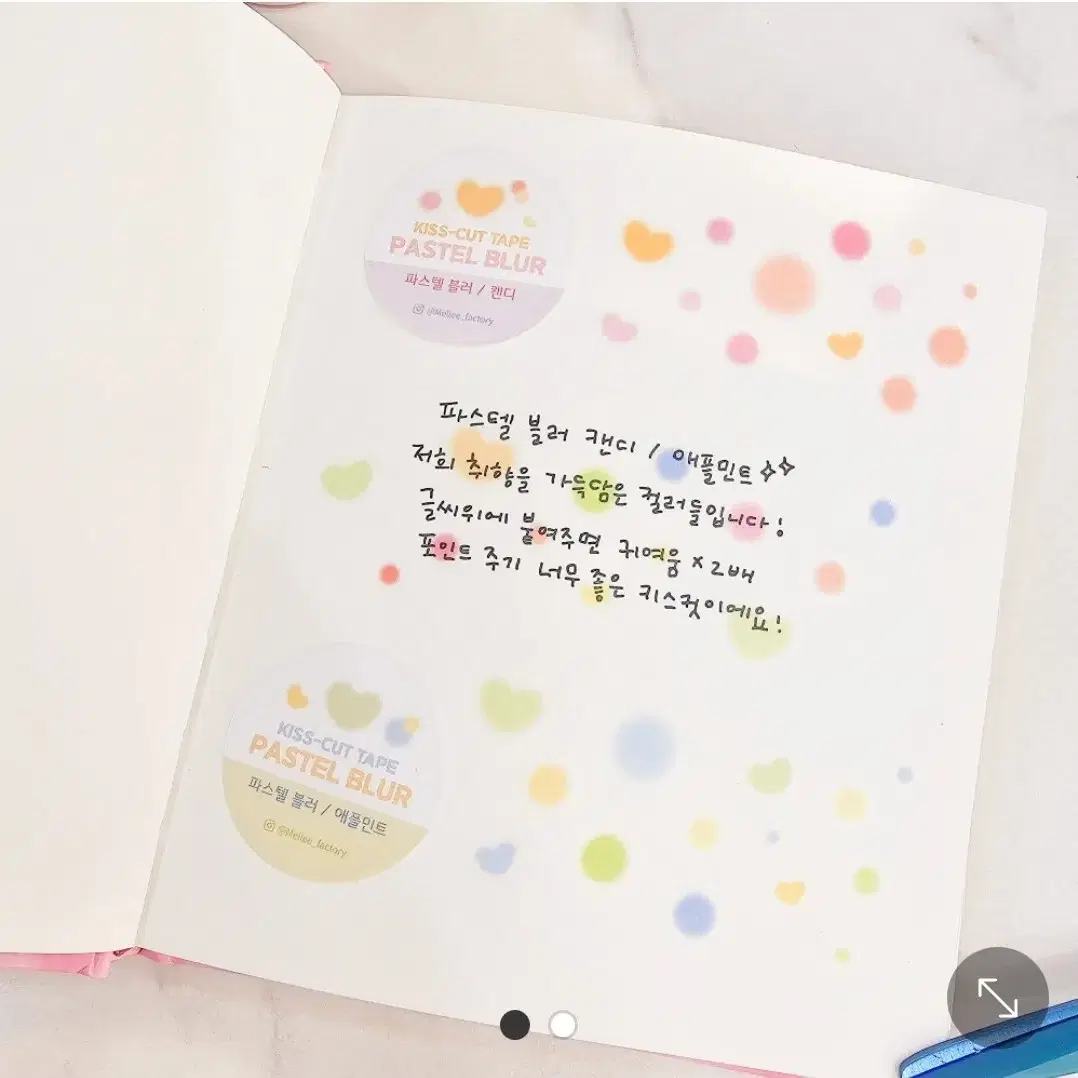 KISS-CUT TAPE
PASTEL BLUR
파스텔 블러 / 캔디
@Meliee_factory
파스텔 블러 캔디 / 애플민트
저희 취향을 가득담은 컬러들입니다!
글씨위에 붙여주면 귀여움 x 2배
포인트 주기 너무 좋은 키스컷이에요!
KISS-CUT TAPE
PASTEL BLUR
파스텔 블러 / 애플민트
@Meliee_factory